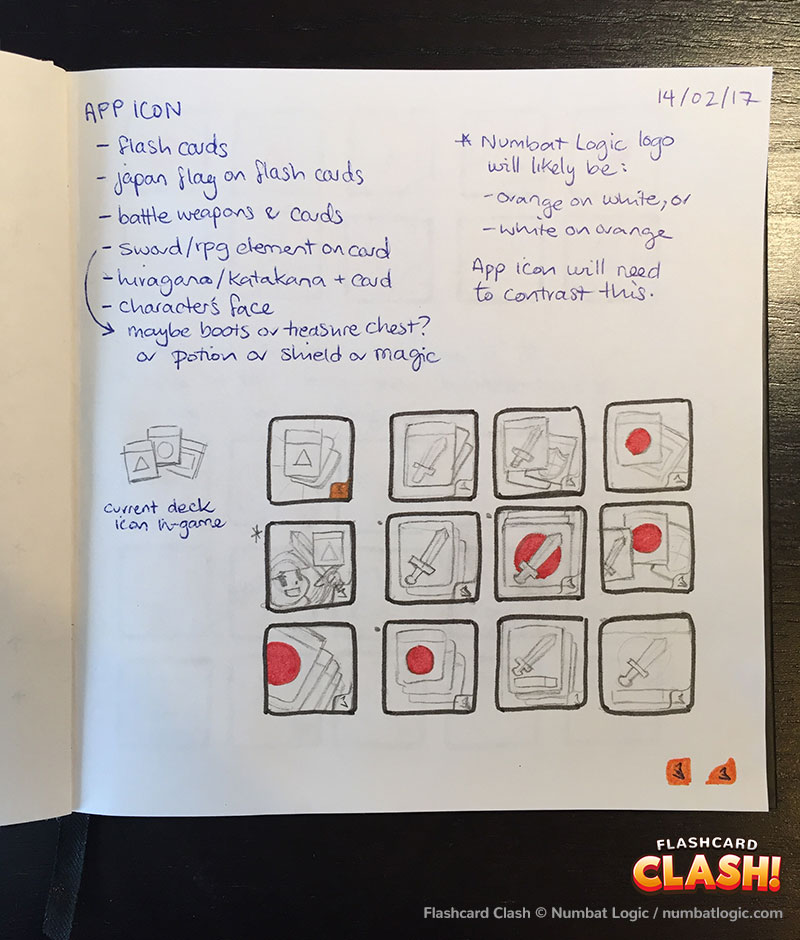 APP ICON
- flash cards
- japan flag on flash cards
- battle weapons & cards
- sword/rpg element on card
- hiragana/katakana + card
- character's face
→ maybe boots or treasure chest?
or potion or shield or magic
14/02/17
* Numbat Logic logo
will likely be:
- orange on white, or
- white on orange
App icon will need
to contrast this.
current deck
icon in-game
*
FLASHCARD
CLASH!
Flashcard Clash © Numbat Logic / numbatlogic.com